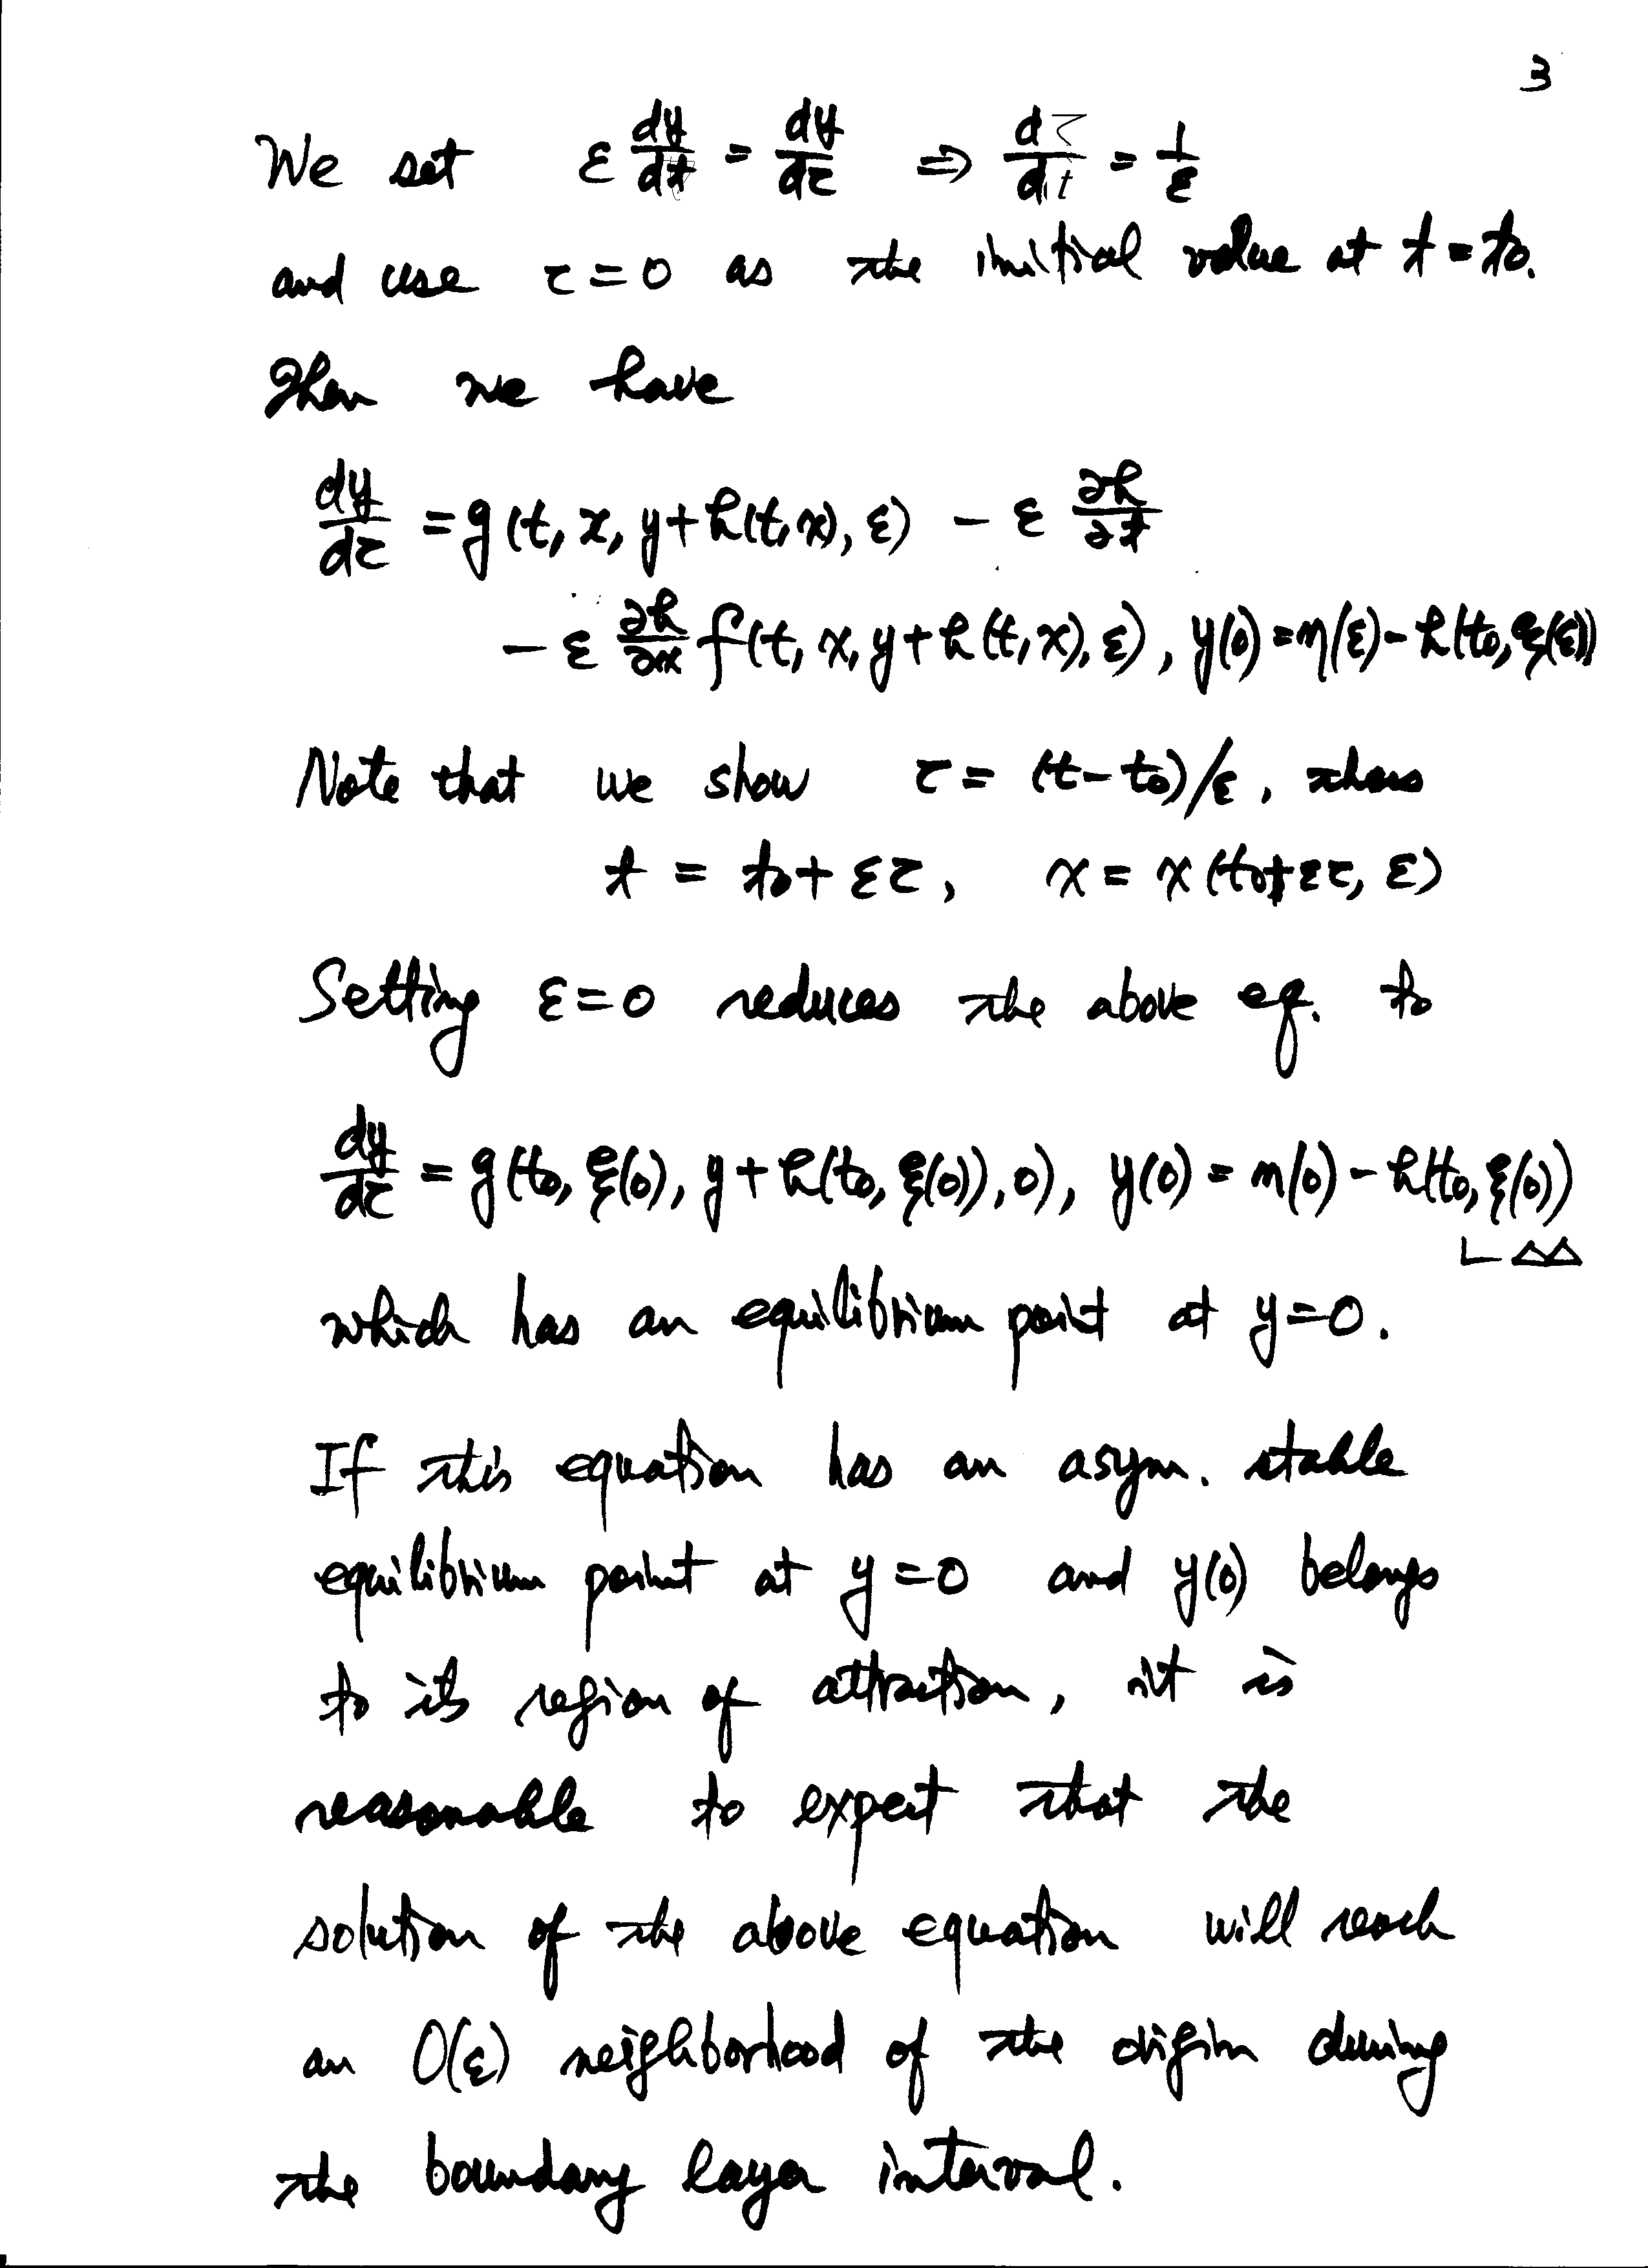 3
We set ε dy/dt = dy/dτ ⇒ dτ/dt = 1/ε
and use τ=0 as the initial value at t=t₀.
Then we have
dy/dτ = g(t, x, y+h(t,x), ε) − ε ∂h/∂t
− ε ∂h/∂x f(t, x, y+h(t,x), ε), y(0)=η(ε)−h(t₀, ξ(ε))
Note that we show τ= (t−t₀)/ε, thus
t = t₀+ετ, x = x(t₀+ετ, ε)
Setting ε=0 reduces the above eq. to
dy/dτ = g(t₀, ξ(0), y+h(t₀, ξ(0)), 0), y(0) = η(0)−h(t₀, ξ(0))
∟△△
which has an equilibrium point at y=0.
If this equation has an asym. stable
equilibrium point at y=0 and y(0) belongs
to its region of attraction, it is
reasonable to expect that the
solution of the above equation will reach
an O(ε) neighborhood of the origin during
the boundary layer interval.